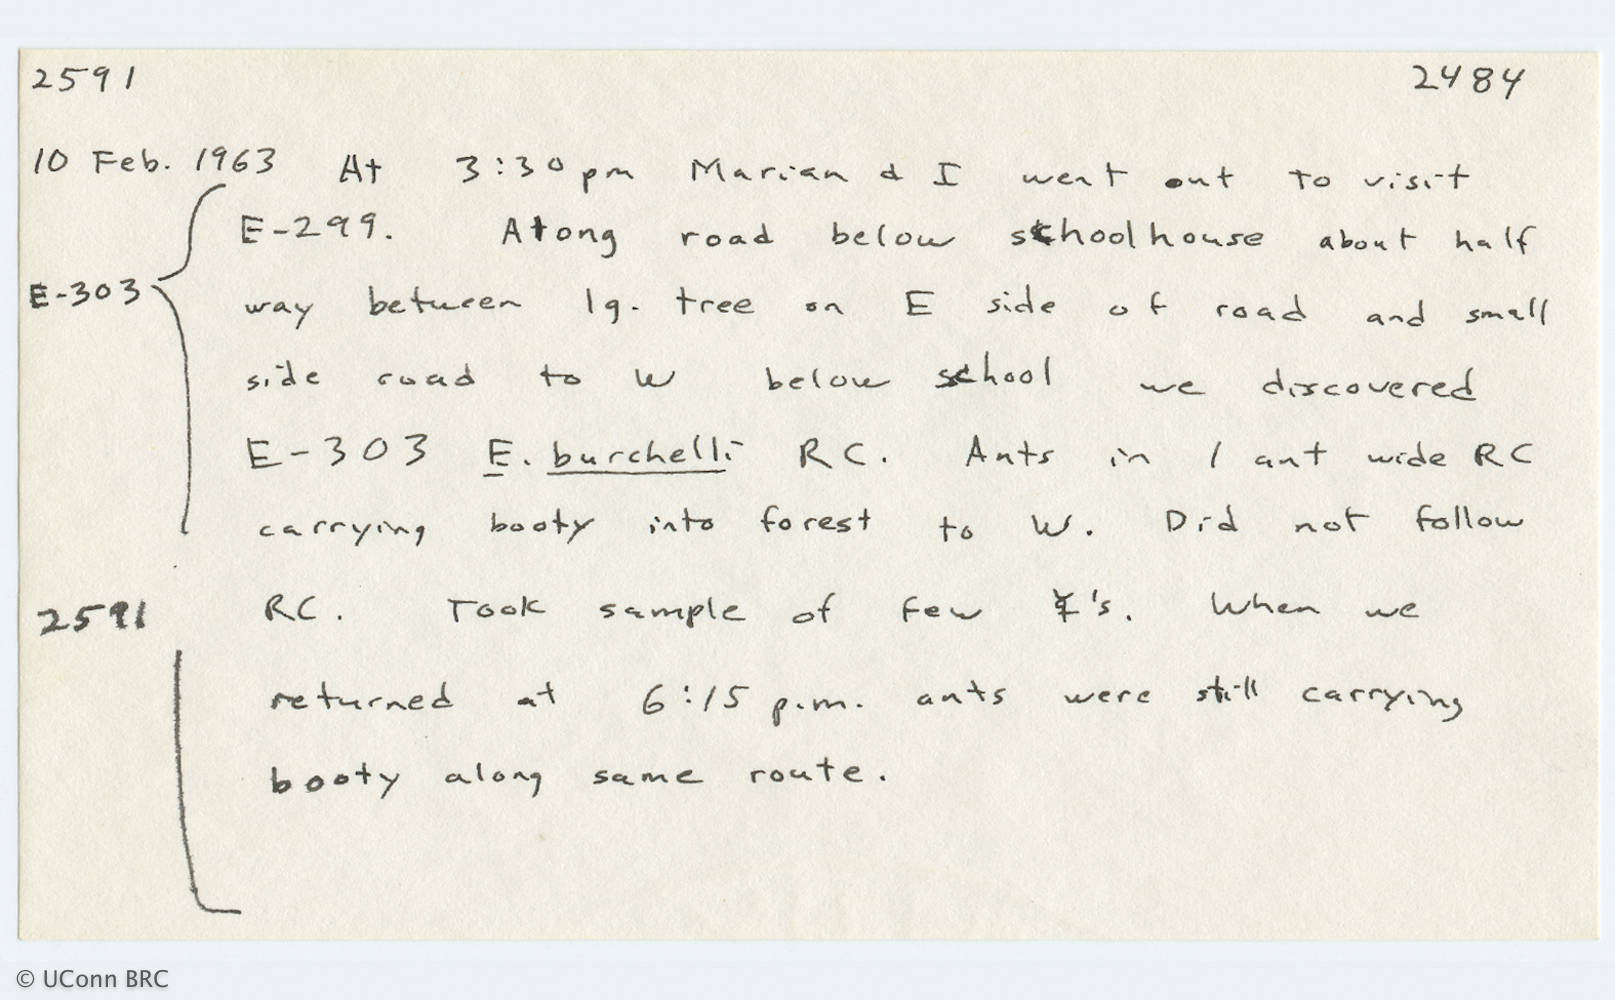 2591 2484
10 Feb. 1963 At 3:30 pm Marian & I went out to visit
E-299. Along road below schoolhouse about half
E-303 way between lg. tree on E side of road and small
side road to W below school we discovered
E-303 E. burchelli RC. Ants in 1 ant wide RC
carrying booty into forest to W. Did not follow
2591 RC. Took sample of few ☿'s. When we
returned at 6:15 p.m. ants were still carrying
booty along same route.
© UConn BRC